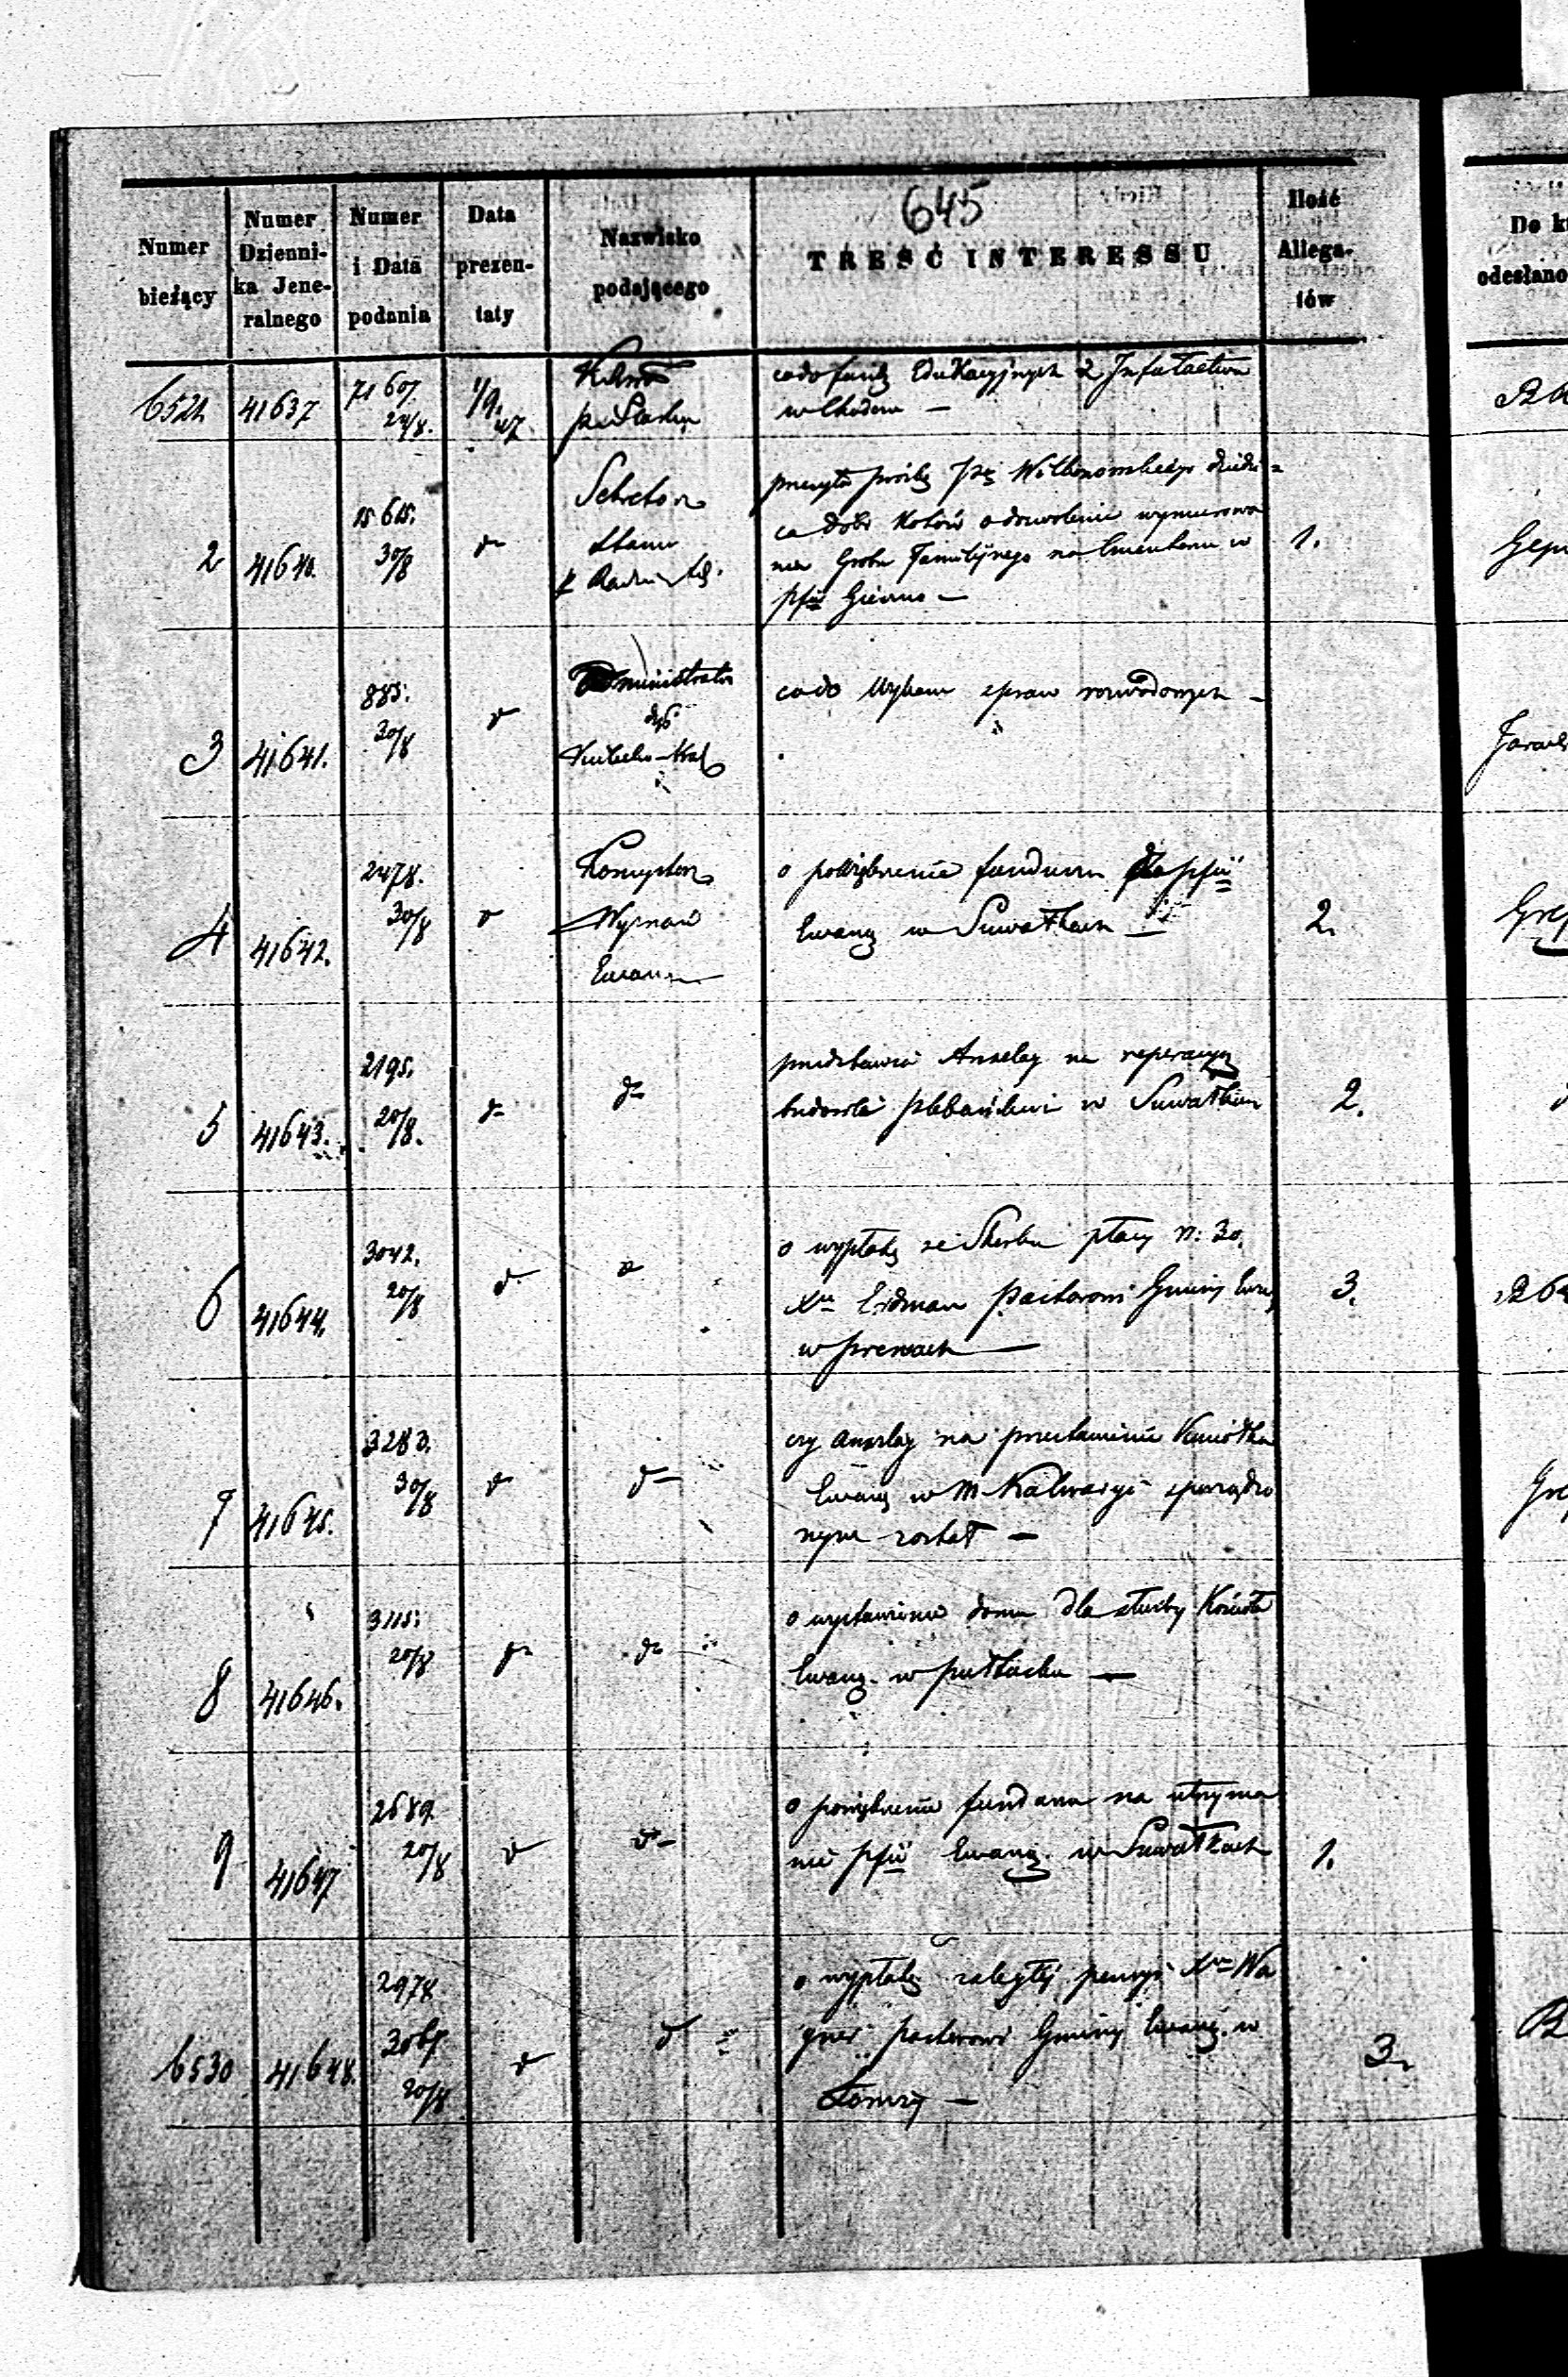 645
Numer bieżący
Numer Dziennika Jeneralnego
Numer i Data podania
Data prezentaty
Nazwisko podającego
TREŚĆ INTERESSU
Ilość Allegatów
Do k
odesłano
41637
71607.
1/9.
47.
co do Edukacyjnych z
w
2
41640.
15615.
30/8
do
Sekretarz
Stanu
przesyła prośbę
ca dóbr o dozwolenie wymurowa
nia Grobu Familijnego na Cmentarzu w
pfii
1.
3
41641.
885.
30/8
do
Administrator
dys
co do Wykazu spraw rozwodowych
4
41642.
2478.
30/8
do
Konsystorz
Wyznań
Ewang
o powiększenie funduszu dla pfii
Ewang w Suwałkach —
2.
5
41643.
2195.
20/8.
do
do
przedstawia Anszlag na reperacyę
budowli plebańskich w Suwałkach
2.
6
41644.
3042.
20/8
do
do
o wypłatę ze Skarbu płacy r: 30.
Xu Erdman pastorowi Gminy Ewang
w Prenach —
3.
7
41645.
3283.
30/8
do
do
czy Anszlag na Kościółka
Ewang w M. Kalwaryi sporządzo
nym został —
8
41646.
3115.
20/8
do
do
o wystawienie domu dla służby Kościoła
Ewang. w Pułtusku —
9
41647
2689.
20/8
do
do
o powiększenie funduszu na utrzyma
nie pfii Ewang. w Suwałkach
1.
6530
41648.
2978
20/8
do
do
o wypłatę zaległej pensyi Xu Wa
gner pastorowi Gminy Ewang. w
Łomży —
3.